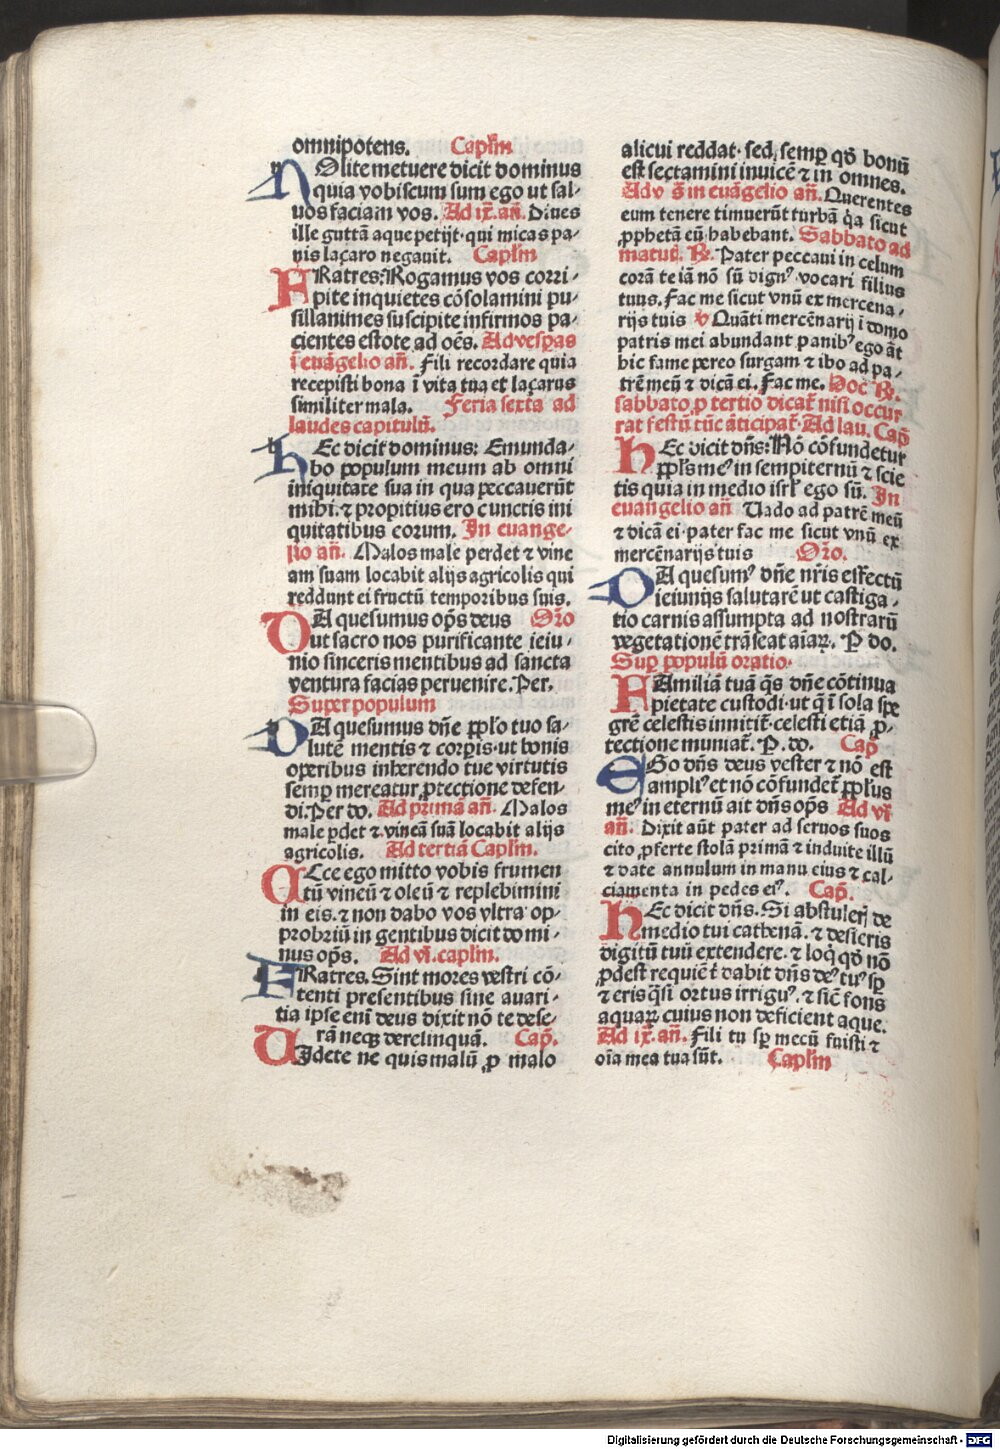 omnipotens. Caplm̄
NOlite metuere dicit dominus
quia vobiscum sum ego ut sal-
uos faciam vos. Ad ix. an̄. Diues
ille guttā aque petijt· qui micas pa-
nis laçaro negauit. Caplm̄
FRatres: Rogamus vos corri-
pite inquietes cōsolamini pu-
sillanimes suscipite infirmos pa-
cientes estote ad oēs. Ad vesꝑas
ī euāgelio an̄. Fili recordare quia
recepisti bona ī vita tua et laçarus
similiter mala. Feria sexta ad
laudes capitulū.
hEc dicit dominus: Emunda-
bo ꝓpopulum meum ab omni
iniquitate sua in qua peccauerūt
mihi. ⁊ propitius ero cunctis ini
quitatibus eorum. In euange-
lio an̄. Malos male perdet ⁊ vine
am suam locabit alijs agricolis qui
reddunt ei fructū temporibus suis.
DA quesumus op̄s deus Oro
ut sacro nos purificante ieiu-
nio sinceris mentibus ad sancta
ventura facias peruenire. Per.
Super populum
DA quesumus dn̄e ppl̄o tuo sa-
lutē mentis ⁊ corꝑis· ut bonis
operibus inherendo tue virtutis
semꝑ mereatur ꝓtectione defen-
di. Per do. Ad primā an̄. Malos
male ꝑdet ⁊ vineā suā locabit alijs
agricolis. Ad tertiā Caplm̄.
ECce ego mitto vobis frumen
tū vineū ⁊ oleū ⁊ replebimini
in eis. ⁊ non dabo vos vltra op-
probriū in gentibus dicit domi-
nus op̄s. Ad vi. caplm̄.
FRatres. Sint mores vestri cō-
tenti presentibus sine auari-
tia ipse enī deus dixit nō te dese-
rā neqꝫ derelinquā. Cap̄.
UIdete ne quis malū ꝓ malo
alicui reddat· sed semꝑ qd̄ bonū
est sectamini inuicē ⁊ in omnes.
Ad v s̄ in euāgelio an̄. Querentes
eum tenere timuerūt turbā q̇a sicut
ꝓphetā eū habebant. Sabbato ad
matut̄. ℟. Pater peccaui in celum
corā te iā nō sū dign⁹ vocari filius
tuus. Fac me sicut vnū ex mercena-
rijs tuis ℣ Quāti mercēnarij ī domo
patris mei abundant panib⁹ ego āt
hic fame pereo surgam ⁊ ibo ad pa-
trē meū ⁊ dicā ei. Fac me. Hoc ℟.
sabbato ꝓ tertio dicat̄ nisi occur
rat festū tūc āticipat̄. Ad lau. Cap̄
hEc dicit dn̄s: Nō cōfundetur
ppl̄s me⁹ in sempiternū ⁊ scie
tis quia in medio isrl̄ ego sū. In
euangelio an̄ Uado ad patrē meū
⁊ dicā ei· pater fac me sicut vnū ex
mercēnarijs tuis Oro.
DA quesum⁹ dn̄e nr̄is effectū
ieiunijs salutarē ut castiga-
tio carnis assumpta ad nostrarū
vegetationē trāseat aīaꝝ. P do.
Suꝑ populū oratio·
FAmiliā tuā q̄s dn̄e cōtinua
pietate custodi· ut q̄ ī sola spe
grē celestis innitit̄· celesti etiā ꝓ-
tectione muniat̄. P. do. Cap̄
EGo dn̄s deus vester ⁊ nō est
ampli⁹ et nō cōfundet̄ ppl̄us
me⁹ in eternū ait dn̄s op̄s Ad vi
an̄. Dixit aūt pater ad seruos suos
cito ꝓferte stolā primā ⁊ induite illū
⁊ date annulum in manu eius ⁊ cal-
ciamenta in pedes ei⁹. Cap̄.
hEc dicit dn̄s. Si abstuler̄ de
medio tui cathenā. ⁊ desieris
digitū tuū extendere. ⁊ loq̇ qd̄ nō
ꝓdest requiē t̄ dabit dn̄s de⁹ tu⁹ sꝑ
⁊ eris q̄si ortus irrigu⁹. ⁊ sic̄ fons
aquaꝝ cuius non deficient aque.
Ad ix. an̄. Fili tu sꝑ mecū fuisti ⁊
oīa mea tua sūt. Caplm̄
Digitalisierung gefördert durch die Deutsche Forschungsgemeinschaft - DFG